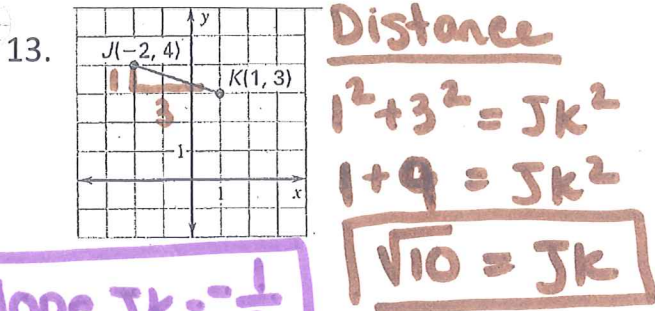 13.
y
J(−2, 4)
K(1, 3)
1
3
1
1
x
Distance
1² + 3² = JK²
1 + 9 = JK²
√10 = JK
JK = -1